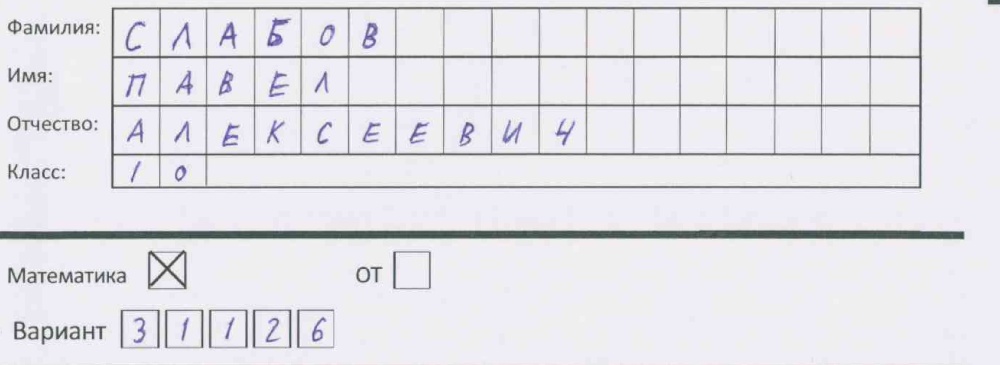 Фамилия: СЛАБОВ
Имя: ПАВЕЛ
Отчество: АЛЕКСЕЕВИЧ
Класс: 10
Математика ☒ ОТ ☐
Вариант 31126